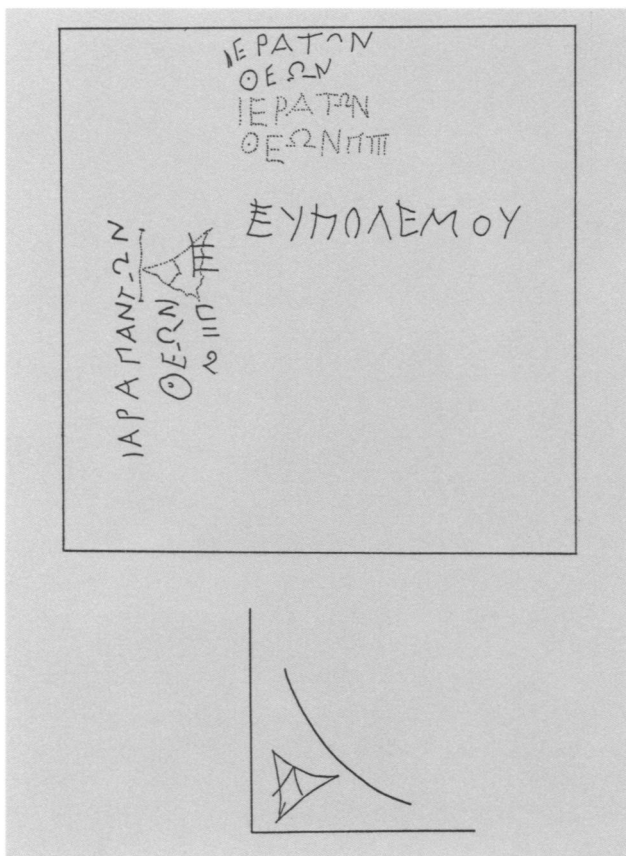 ΙΕΡΑΤΩΝ
ΘΕΩΝ
ΙΕΡΑΤΩΝ
ΘΕΩΝΠΠΙΙ
ΕΥΠΟΛΕΜΟΥ
ΙΑΡΑΠΑΝΤΩΝ
ΘΕΩΝ